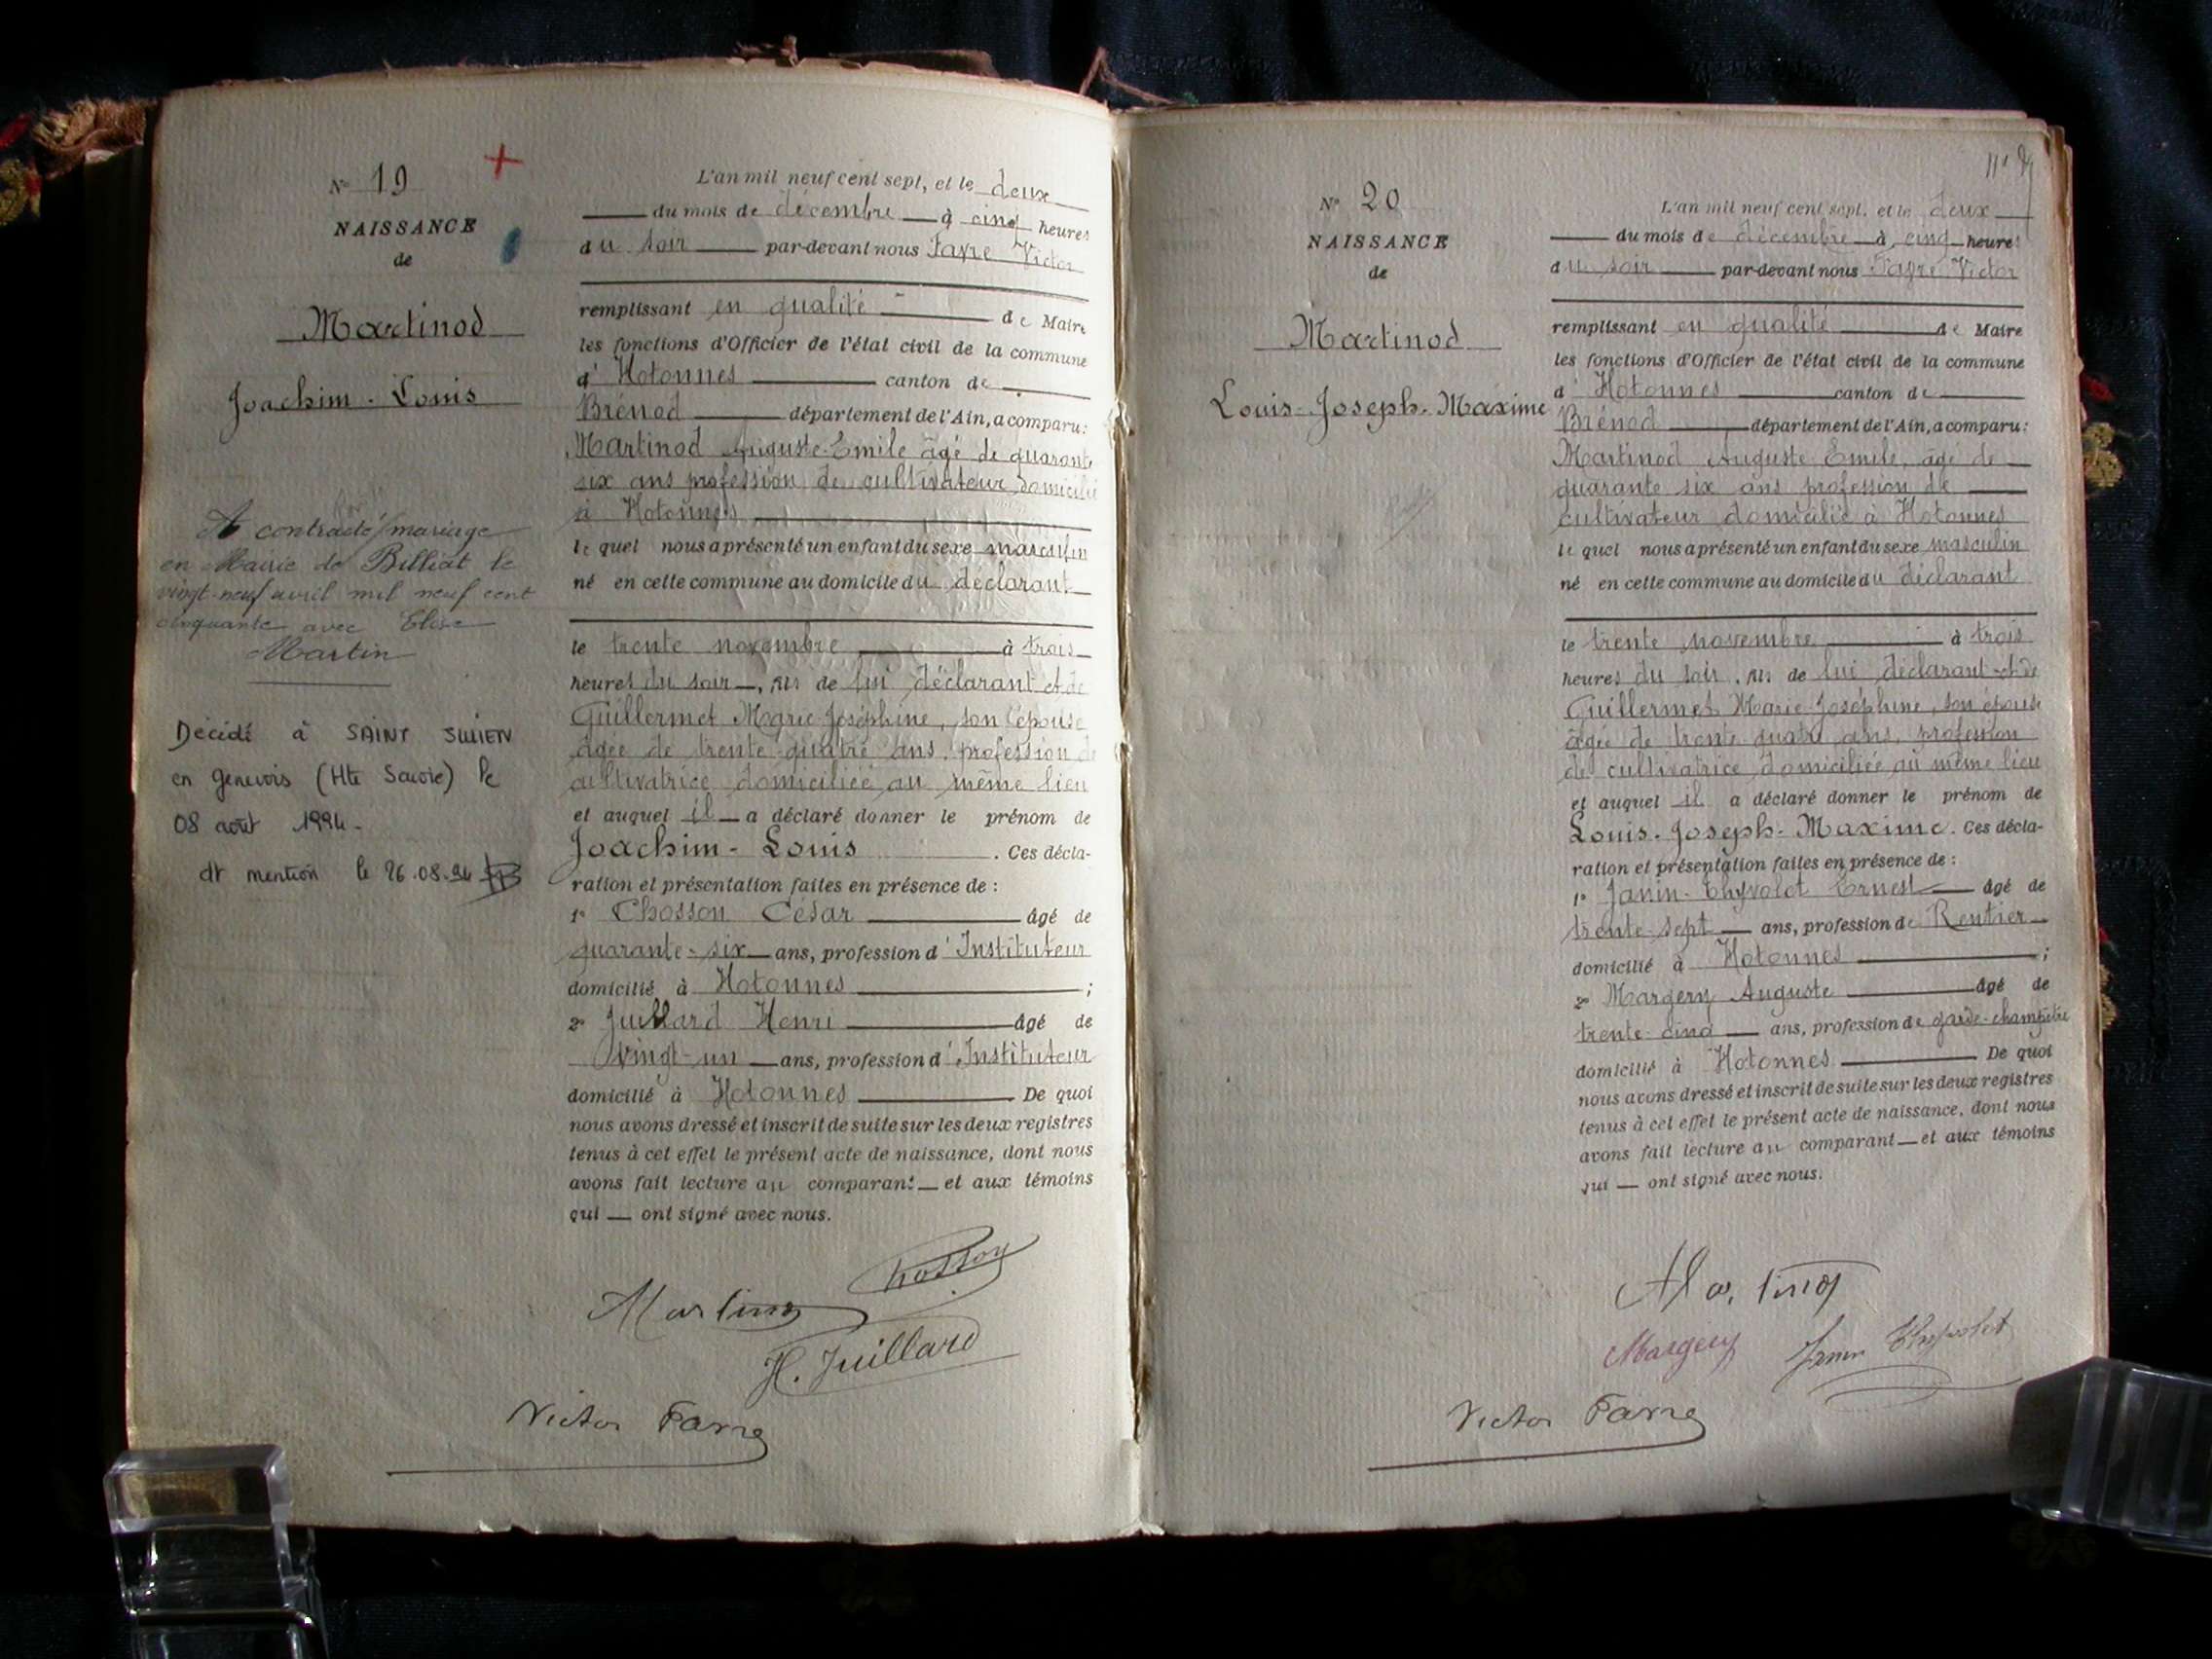 N° 19
NAISSANCE
de
Martinod
Joachim-Louis
A contracté mariage
en Mairie de Billiat le
vingt-neuf avril mil neuf cent
cinquante avec Elise
Martin
Décédé à SAINT JULIEN
en genevois (Hte Savoie) le
08 août 1994.
dt mention le 26.08.94
L'an mil neuf cent sept, et le deux
du mois de décembre à cinq heures
du soir par-devant nous Favre Victor
remplissant en qualité de Maire
les fonctions d'Officier de l'état civil de la commune
d'Hotonnes canton de
Brénod département de l'Ain, a comparu:
Martinod Auguste-Emile âgé de quarante
six ans profession de cultivateur domicilié
à Hotonnes
lequel nous a présenté un enfant du sexe masculin
né en cette commune au domicile du déclarant
le trente novembre à trois
heures du soir, fils de lui déclarant et de
Guillermet Marie-Joséphine, son épouse
âgée de trente-quatre ans, profession de
cultivatrice domiciliée au même lieu
et auquel il a déclaré donner le prénom de
Joachim-Louis. Ces décla-
ration et présentation faites en présence de :
1° Chosson César âgé de
quarante-six ans, profession d'Instituteur
domicilié à Hotonnes ;
2° Juillard Henri âgé de
vingt-un ans, profession d'Instituteur
domicilié à Hotonnes De quoi
nous avons dressé et inscrit de suite sur les deux registres
tenus à cet effet le présent acte de naissance, dont nous
avons fait lecture au comparant et aux témoins
qui ont signé avec nous.
Chosson
Martinod
H. Juillard
Victor Favre
N° 20
NAISSANCE
de
Martinod
Louis-Joseph-Maxime
L'an mil neuf cent sept, et le deux
du mois de décembre à cinq heures
du soir par-devant nous Favre Victor
remplissant en qualité de Maire
les fonctions d'Officier de l'état civil de la commune
d'Hotonnes canton de
Brénod département de l'Ain, a comparu:
Martinod Auguste Emile, âgé de
quarante six ans profession de
cultivateur domicilié à Hotonnes
lequel nous a présenté un enfant du sexe masculin
né en cette commune au domicile du déclarant
le trente novembre à trois
heures du soir, fils de lui déclarant et de
Guillermet Marie-Joséphine, son épouse
âgée de trente quatre ans, profession
de cultivatrice domiciliée au même lieu
et auquel il a déclaré donner le prénom de
Louis-Joseph-Maxime. Ces décla-
ration et présentation faites en présence de :
1° Janin-Thyvolet Ernest âgé de
trente-sept ans, profession de Rentier
domicilié à Hotonnes ;
2° Margery Auguste âgé de
trente-cinq ans, profession de garde-champêtre
domicilié à Hotonnes De quoi
nous avons dressé et inscrit de suite sur les deux registres
tenus à cet effet le présent acte de naissance, dont nous
avons fait lecture au comparant et aux témoins
qui ont signé avec nous.
Martinod
Margery Janin Thyvolet
Victor Favre